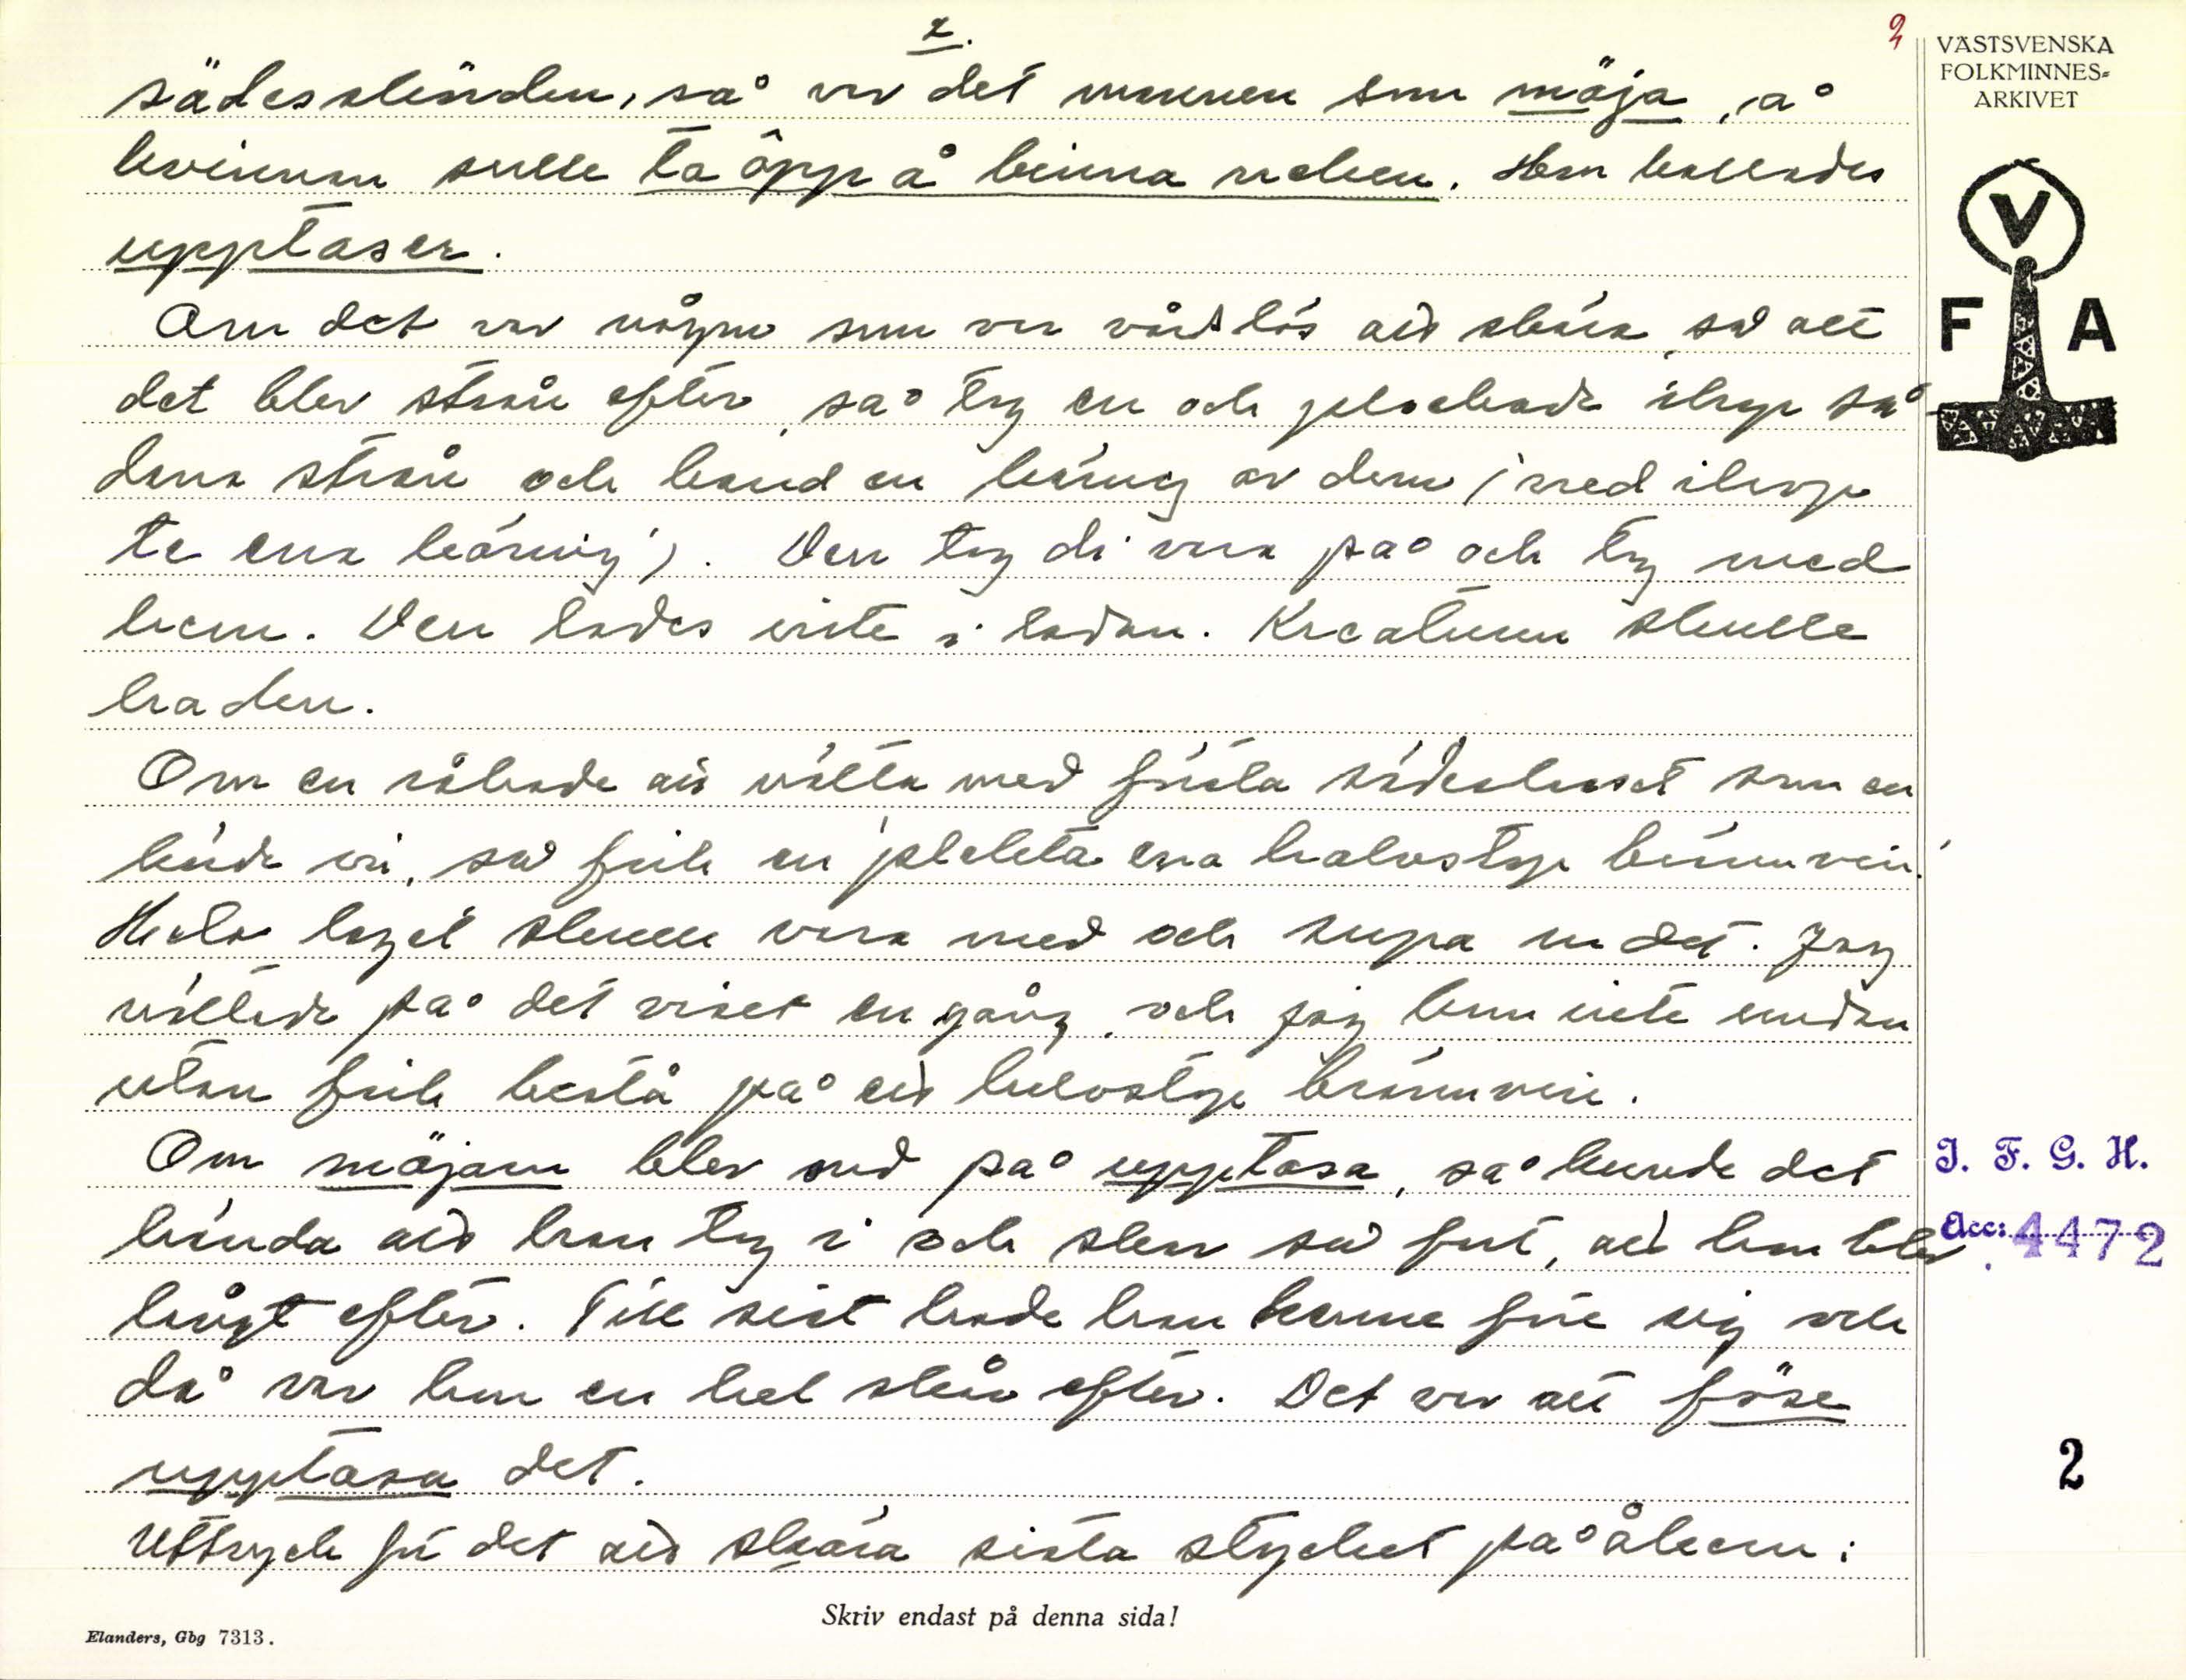 2.
2
VÄSTSVENSKA
FOLKMINNES-
ARKIVET
V
F A
sädesskörden, så var det mannen som mäja, å
kvinnan sulle ta öpp å binna neken. Hon kallades
upptaser.
Om det var någon som var vårdslös att skära, så att
det blev strån efter, så tog en och plockade ihop så
dana strån och band en kärng av dem (vred ihop
te ena käring). Den tog di vara på och tog med
hem. Den lades inte i ladan. Kreaturen skulle
ha den.
Om en råkade att välta med första sädeslasset som en
körde in, så fick en plikta ena halvstop brännvin.
Hela laget skulle vara med och supa ur det. Jag
vältade på det viset en gång, och jag kom inte undan
utan fick bestå på ett halvstop brännvin.
Om mäjaren blev ond på upptasa, så kunde det
hända att han tog i och slog så fort, att hon blev
långt efter. Till sist hade han henne före sig och
då var hon en hel skåre efter. Det var att föse
upptasa det.
Uttryck för det att skära sista stycket på åkern:
I. F. G. H.
Acc: 4472
2
Skriv endast på denna sida!
Elanders, Gbg 7313.